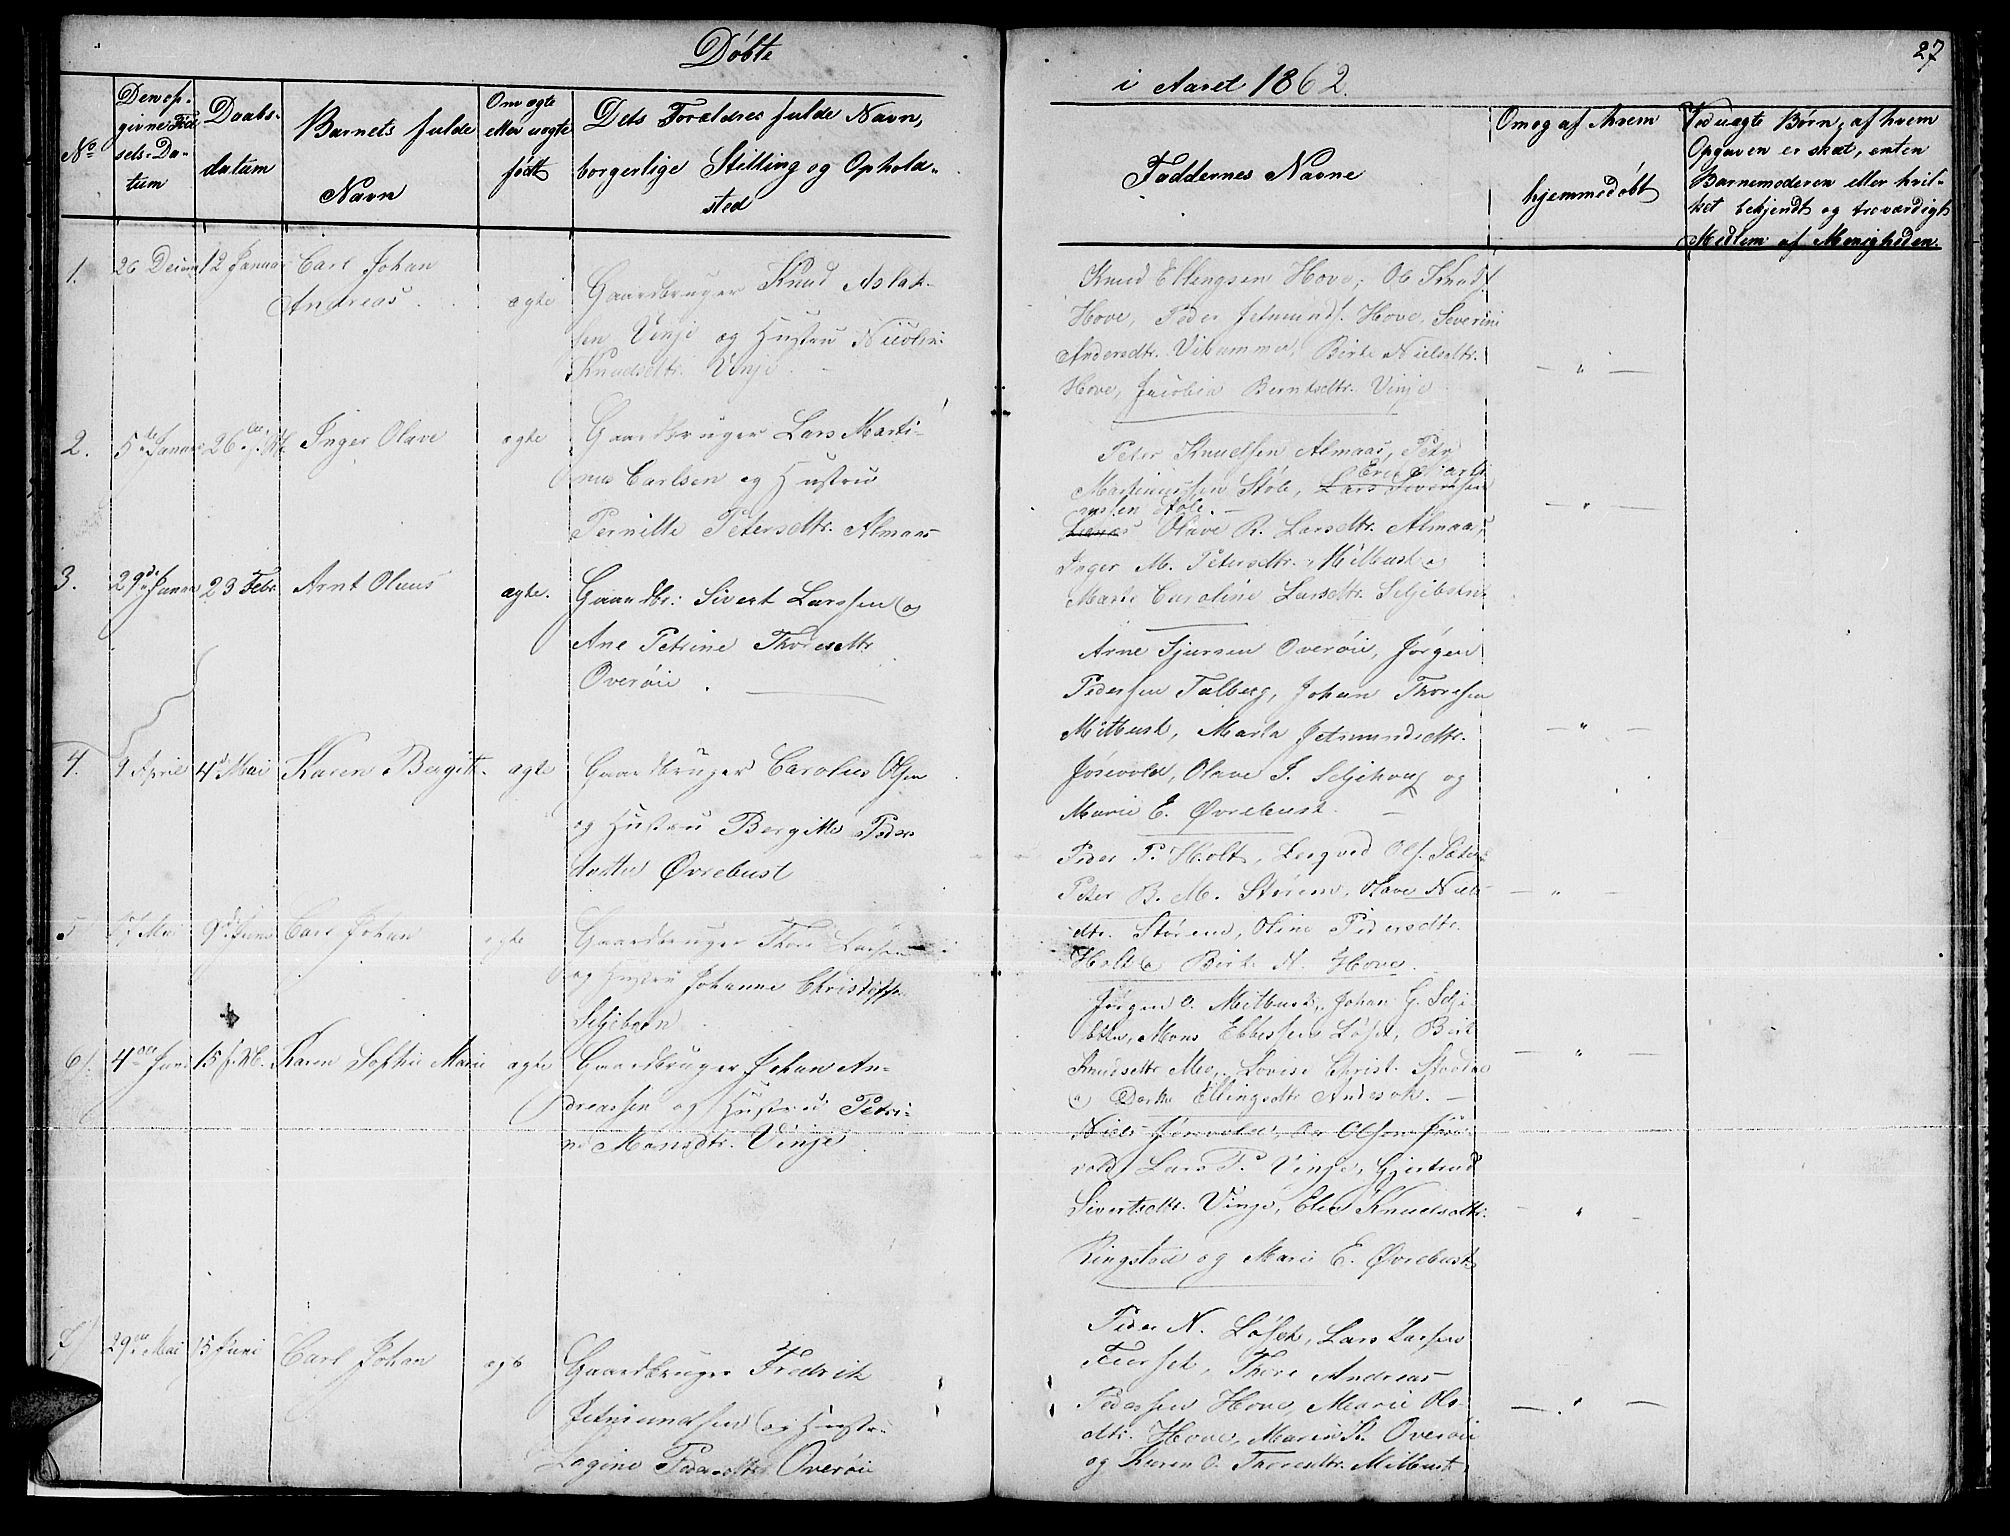 Døbte
i Aaret 1862.
27
No
Den op-
givne Fød
sels-Da-
tum
Daabs-
datum
Barnets fulde
Navn
Om ægte
eller uægte
født
Dets Forældres fulde Navn,
borgerlige Stilling og Opholds-
sted
Faddernes Navne
Om og af hvem
hjemmedøbt
Ved uægte Børn, af hvem
Opgaven er skeet, enten
Barnemoderen eller hvil-
ket bekjendt og troværdigt
Medlem af Menigheden.
1. 26 12 Januar Carl Johan
Andreas.
ægte
Gaardbruger Knud Aslak-
sen Vinje og Hustru
Knudsdtr. Vinje.
Knud Ellingsen Hove, Ole Knuds.
Hove, Peder Jetmunds. Hove,
Andersdtr. Birte Nielsdtr.
Hove, Jacobia Berntsdtr. Vinje
2. 5te Januar 26 Inger Olave ægte
Gaardbruger Lars Marti-
nus Carlsen og Hustru
Pernille Petersdtr. Almaas
Peter Knudsen Almaas, Petr
Martinussen Støle, Lars Sivertsen
Støle.
Olave R. Larsdtr. Almaas,
Inger M. Petersdtr. Mitbust og
Marte Caroline Larsdtr.
3. 29de Januar 23 Febr Arnt Olaus ægte.
Gaardbr: Sivert Larssen og
Ane Petrine Thoresdtr
Overøie.
Arne Sjursen Overøie, Jørgen
Pedersen Talberg, Johan Thoresen
Mitbust, Marta Jetmundsdtr.
Jørevold, Olave J. og
Marie E. Øvrebust.
4. 9 April 4de Mai Karen Bergitt. ægte
Gaardbruger Carolus Olsen
og Hustru Bergitte Peders
datter Øvrebust
Peder P. Holt, Ols.
Peter B. M. Støren, Olave Niels-
dtr. Støren, Oline Pedersdtr.
Holt og Birte N. Hove.
5 17 Mai 9de Juni Carl Johan ægte
Gaardbruger Thore Larsen
og Hustru Johanne
Seljebotn
Jørgen O. Mitbust, Johan G. Selje-
botn, Mons Ebbessen Løset,
Knudsdtr Lovise Christ.
og Dorthe Ellingsdtr
6. 4de Juni 15 Karen Sophie Marie ægte
Gaardbruger Johan An-
dreassen og Hustru Petri-
ne Monsdtr. Vinje.
Niels Jørevold, Olsen Jøre-
vold, Lars P. Vinje, Gjertrud
Sivertsdtr. Vinje, Knudsdtr.
Ringstad og Marie E. Øvrebust
7 29de Mai 15 Juni Carl Johan ægte
Gaardbruger Fredrik
Jetmundsen og Hustru
Pedersdtr Overøie
Peder N. Løset, Lars Larsen
Thore Andreas
Pedersen Hove, Marie Ols-
dtr. Hove, Overøie
og Karen O. Thoresdtr. Mitbust